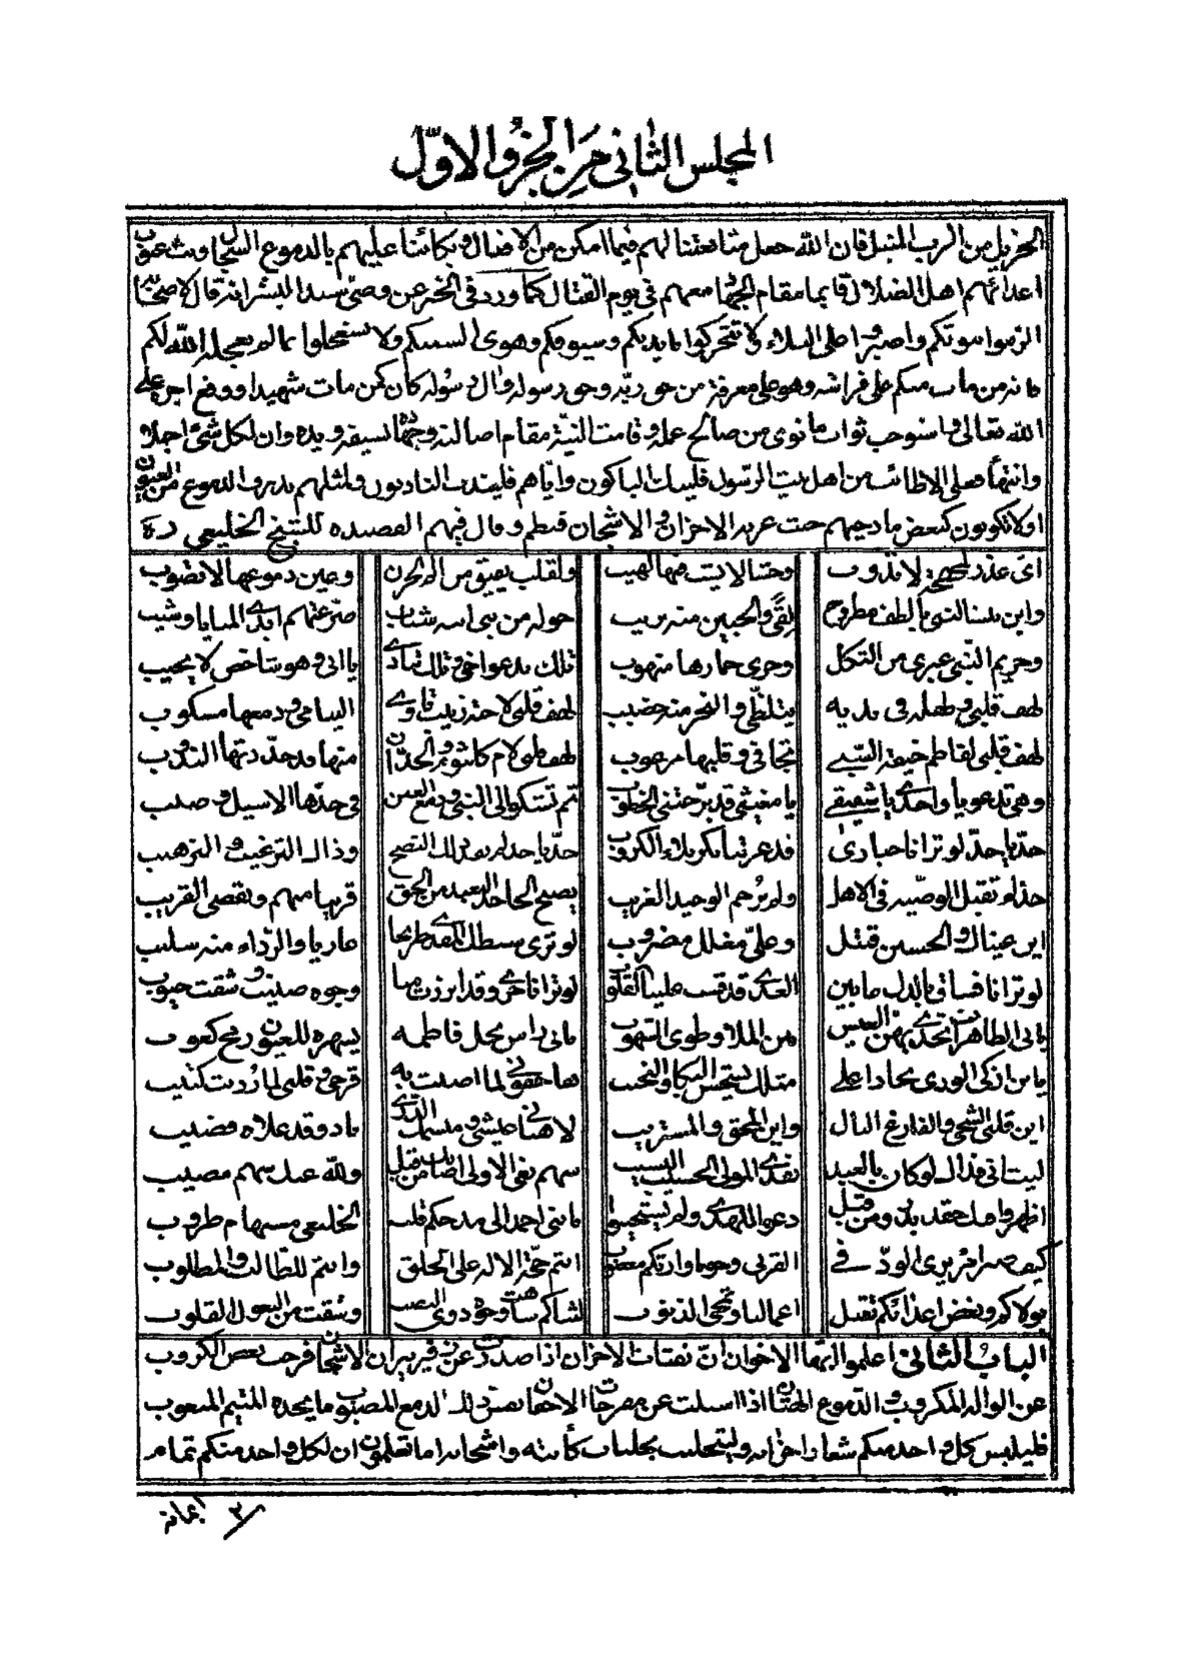 المجلس الثانى من الجزو الاوّل
الجزيل من الرب المنيل فان الله جعل متابعتنا لهم فيما امكن من الافضال وبكائنا عليهم بالدموع السجال
اعدائهم اهل الضلال قايما مقام الجهاد معهم فى يوم القتال كما ورد فى الخبر عن وصىّ سيد البشر انه قال لاصحابه
الزموا بيوتكم واصبروا على البلاء ولا تتحركوا بايديكم وسيوفكم وهوى السنتكم ولا تستعجلوا بما لم يعجله الله لكم
فانه من مات منكم على فراشه وهو على معرفة من حق ربّه وحق رسوله وال رسوله كان كمن مات شهيدا ووقع اجره على
الله تعالى واستوجب ثواب ما نوى من صالح عمله وقامت النيّة مقام اصالته وجهاده بسيفه ويده وان لكل شئ اجلا
وانتهاء فعلى الاطائب من اهل بيت الرسول فليبك الباكون واياهم فليندب النادبون ولمثلهم تذرف الدموع من العيون
اولا تكونون كبعض مادحيهم حيث عرته الاحزان والاشجان فنظم وقال فيهم القصيدة للشيخ الخليعى ره
اى عذر لمهجة لا تذوب وحشا لا يشب فيها لهيب ولقلب يفيق من الم الحزن وعين دموعها لا تصوب
وابن بنت النبى بالطف مطروح لقى والجبين منه تريب حوله من بنى ابيه شباب صرعتهم ايدى المنايا وشيب
وحريم النبى عبرى من الثكل وحرى خمارها منهوب تلك تدعو اخى وتلك تنادى يا ابى وهو شاخص لا يجيب
لهف قلبى وطفله فى يديه يتلظى والنحر منه خضيب لهف قلبى لاخته زينب تاوى اليتامى ودمعها مسكوب
لهف قلبى لفاطم خيفة السبى تجافى وقلبها مرعوب لهف قلبى لام كلثوم والخدان منها قد خددتها الندوب
وهى تدعو يا واحدى يا شقيقى يا مغيثى قد برحتنى الخطوب ثم تشكو الى النبى ودمع العين فى خدها الاسيل صبيب
جد يا جد لو ترانا حيارى قد عرتنا بكربلاء الكروب جد يا جد لم يفد ذلك النصح وذاك الترغيب والترهيب
جد لم تقبل الوصية فى الاهل ولم يرحم الوحيد الغريب يصبح الجاحد البعيد من الحق قريبا منهم ويقصى القريب
اين عيناك والحسين قتيل وعلى مغلل مضروب لو ترى سبطك المفدى طريحا عاريا والرداء منه سليب
لو ترانا نساق بالذل ما بين العدى قد قست علينا القلوب لو ترانا حرى وقد ابرزت منا وجوه صينت وشقت جيوب
بابى الطاهرات تحدى بهن العيس بين الملا وطوى السهوب بابى راس نجل فاطمه يشهره للعيون رمح كعوب
يا ابن ازكى الورى نجارا على مثلك يستحسن البكا والنحيب ها جفونى لما اصبت به قرحى وقلبى لما رزيت كئيب
اين قلبى الشجى والفارغ البال واين المحق والمستريب لا هنانى عيشى ومبسمك الدرى باد وقد علاه قضيب
ليتانى فداك لو كان بالعبد يفدى المولى الحسيب النسيب سهم بغى الاولى اصابك من قبل ولله عبك سهم مصيب
اظهروا فيك حقد بدر ومن قبل دعوا للهدى ولم يستجيبوا يا بنى احمد الى مدحكم قلب الخليعى مستهام طروب
كيف صبر امرئ يرى الود فى القربى وجوبا وارثكم مغصوب انتم حجة الاله على الخلق وانتم للطالب المطلوب
بولاكم وبغض اعدائكم تقبل اعمالنا وتمحى الذنوب
الباب الثانى اعلموا ايها الاخوان انّ نفثات الاحزان اذا صدرت عن زفير نيران الاشجان فرجت بعض الكروب
عن الواله المكروب والدموع الهتان اذا اسبلت عن مقرحات الاجفان نفس ذلك الدمع المصبوب ما يجده المتيم المتعوب
فليلبس كل واحد منكم شعار احزانه وليتجلبب بجلباب كأبته واشجانه اما تعلمون ان لكل واحد منكم تمام
٣
ايمانه